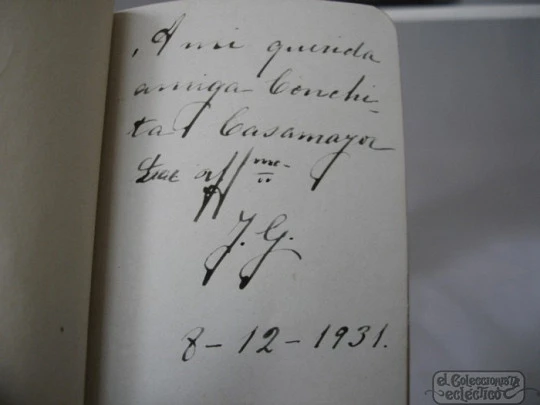 A mi querida
amiga Conchi-
ta Casamayor
aff me.
J. G.
8-12-1931.
el Coleccionista
ecléctico